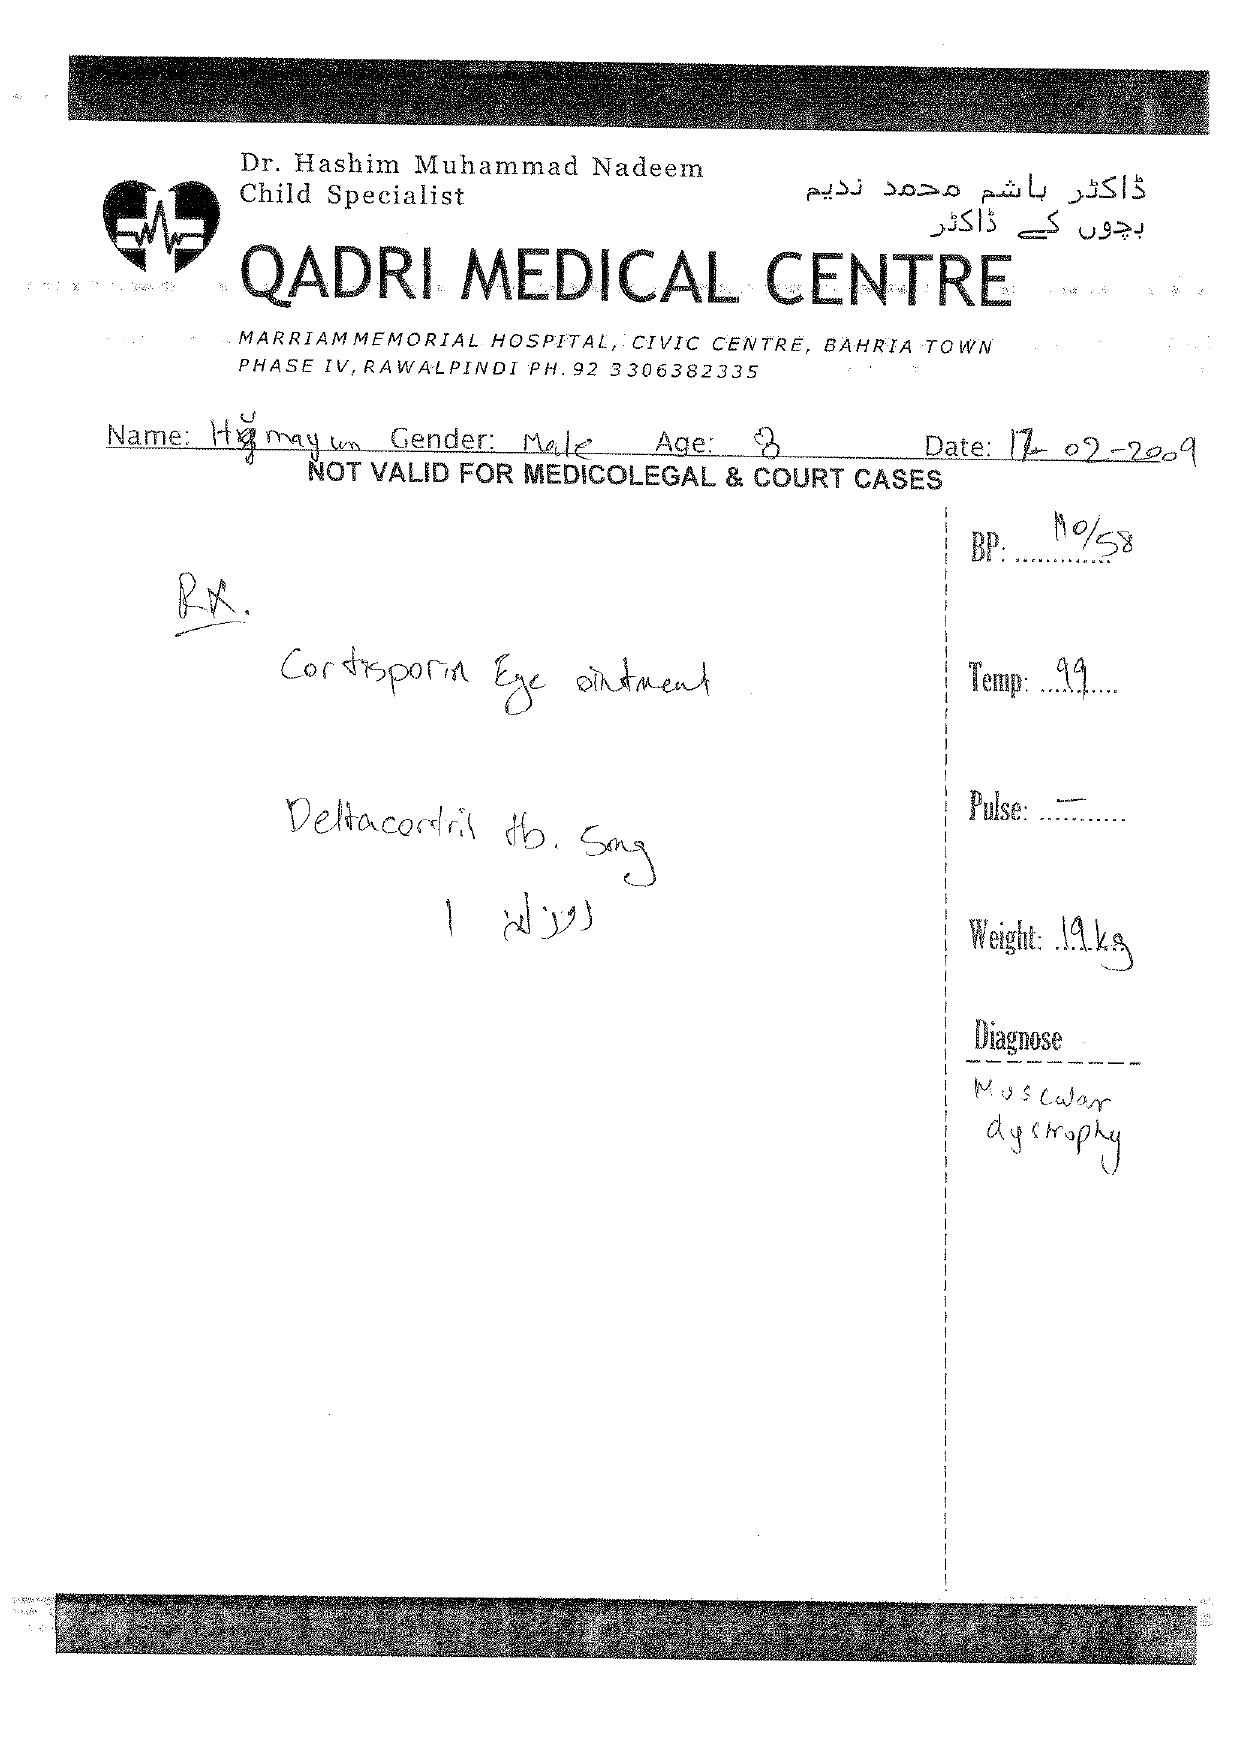 Dr. Hashim Muhammad Nadeem
Child Specialist
ڈاکٹر ہاشم محمد ندیم
بچوں کے ڈاکٹر
QADRI MEDICAL CENTRE
MARRIAM MEMORIAL HOSPITAL, CIVIC CENTRE, BAHRIA TOWN
PHASE IV, RAWALPINDI PH. 92 3306382335
Name: Humayun Gender: Male Age: 8 Date: 17-02-2009
NOT VALID FOR MEDICOLEGAL & COURT CASES
BP: 110/58
Rx.
Cortisporin Eye ointment
Temp: 99
Deltacortril tb. 5mg
Pulse: —
1 روزانہ
Weight: 19kg
Diagnose
Muscular
dystrophy